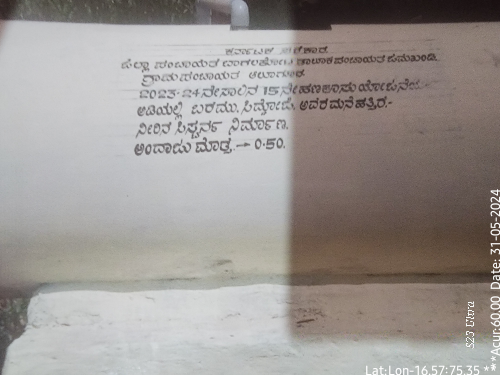 ಕರ್ನಾಟಕ ಸರಕಾರ
ಜಿಲ್ಲಾ ಪಂಚಾಯತ ಬಾಗಲಕೋಟ ತಾಲೂಕ ಪಂಚಾಯತ ಜಮಖಂಡಿ.
ಗ್ರಾಮ ಪಂಚಾಯತ ಆಲಗೂರ
2023-24ನೇಸಾಲಿನ 15ನೇಹಣಕಾಸು ಯೋಜನೆಯ
ಅಡಿಯಲ್ಲಿ ಬರಮು. ಅವರ ಮನೆ ಹತ್ತಿರ-
ನೀರಿನ ಸಿಸ್ಟರ್ನ ನಿರ್ಮಾಣ.
ಅಂದಾಜು ಮೊತ್ತ.→ 0.50.
S23 Ultra
Lat:Lon-16.57:75.35 ***Acur:60.00 Date: 31-05-2024